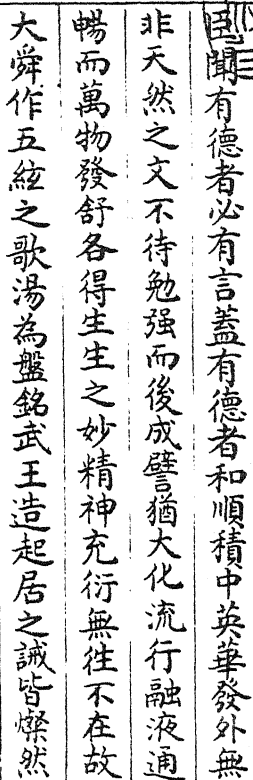 臣聞有德者必有言蓋有德者和順積中英華發外無
非天然之文不待勉强而後成譬猶大化流行融液通
暢而萬物發舒各得生生之妙精神充衍無徃不在故
大舜作五絃之歌湯為盤銘武王造起居之誡皆爍然